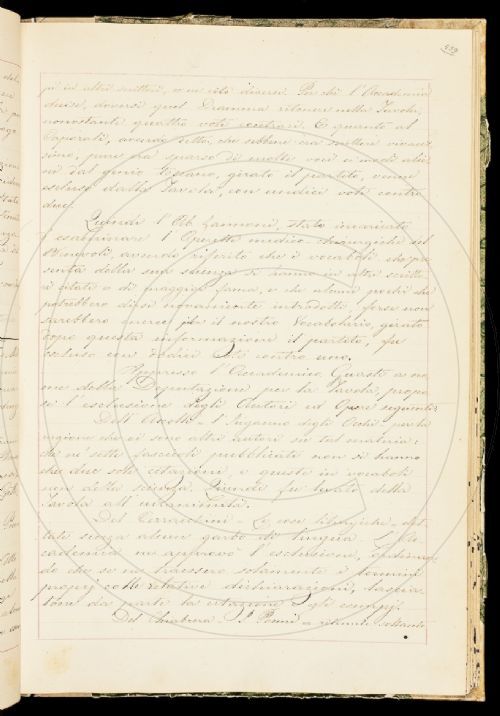 pi in altri scrittori, o in siti diversi. Perchè l'Accademia
decise, doversi quel Dramma ritenere nella Tavola,
nonostanti quattro voti contrari. E quanto al
Caporali, avendo detto, che sebbene era scrittore vivacis
simo, pure ha sparso di molte voci e modi alie
ni dal genio Toscano, girato il partito, venne
escluso dalla Tavola, con undici voti contro
due.
Quindi l'Ab. Zannoni, stato incaricato
d'esaminare l'Operette medico-chirurgiche del
avendo riferito che i vocaboli, che pre
senta della sua scienza si hanno in altri scritto
ri citati o di maggior fama, e che alcuni pochi che
potrebbero dirsi nuovamente introdotti, forse non
sarebbero merce per il nostro Vocabolario, girato
dopo questa informazione il partito, fu
escluso con dodici voti contro uno.
Appresso l'Accademico Guasti a no
me della Deputazione per la Tavola, propo
se l'esclusione degli Autori ed Opere seguenti:
Dell' l'Inganno degli Occhi per la
ragione che ci sono altri autori su tal materia:
che ne' sette fascicoli pubblicati non si hanno
che due sole citazioni, e queste in vocaboli
non della scienza. Quindi fu levato dalla
Tavola all'unanimità.
Del Ferrantini - Le cose liturgiche, det
tate senza alcun garbo di lingua. L'Ac
cademia ne approvò l'esclusione, ordinan
do che se ne traessero solamente i termini
proprj colle relative dichiarazioni, lascia
tone da parte la citazione e gli esempj.
Del Chiabrera - I Poemi a ritenute soltanto